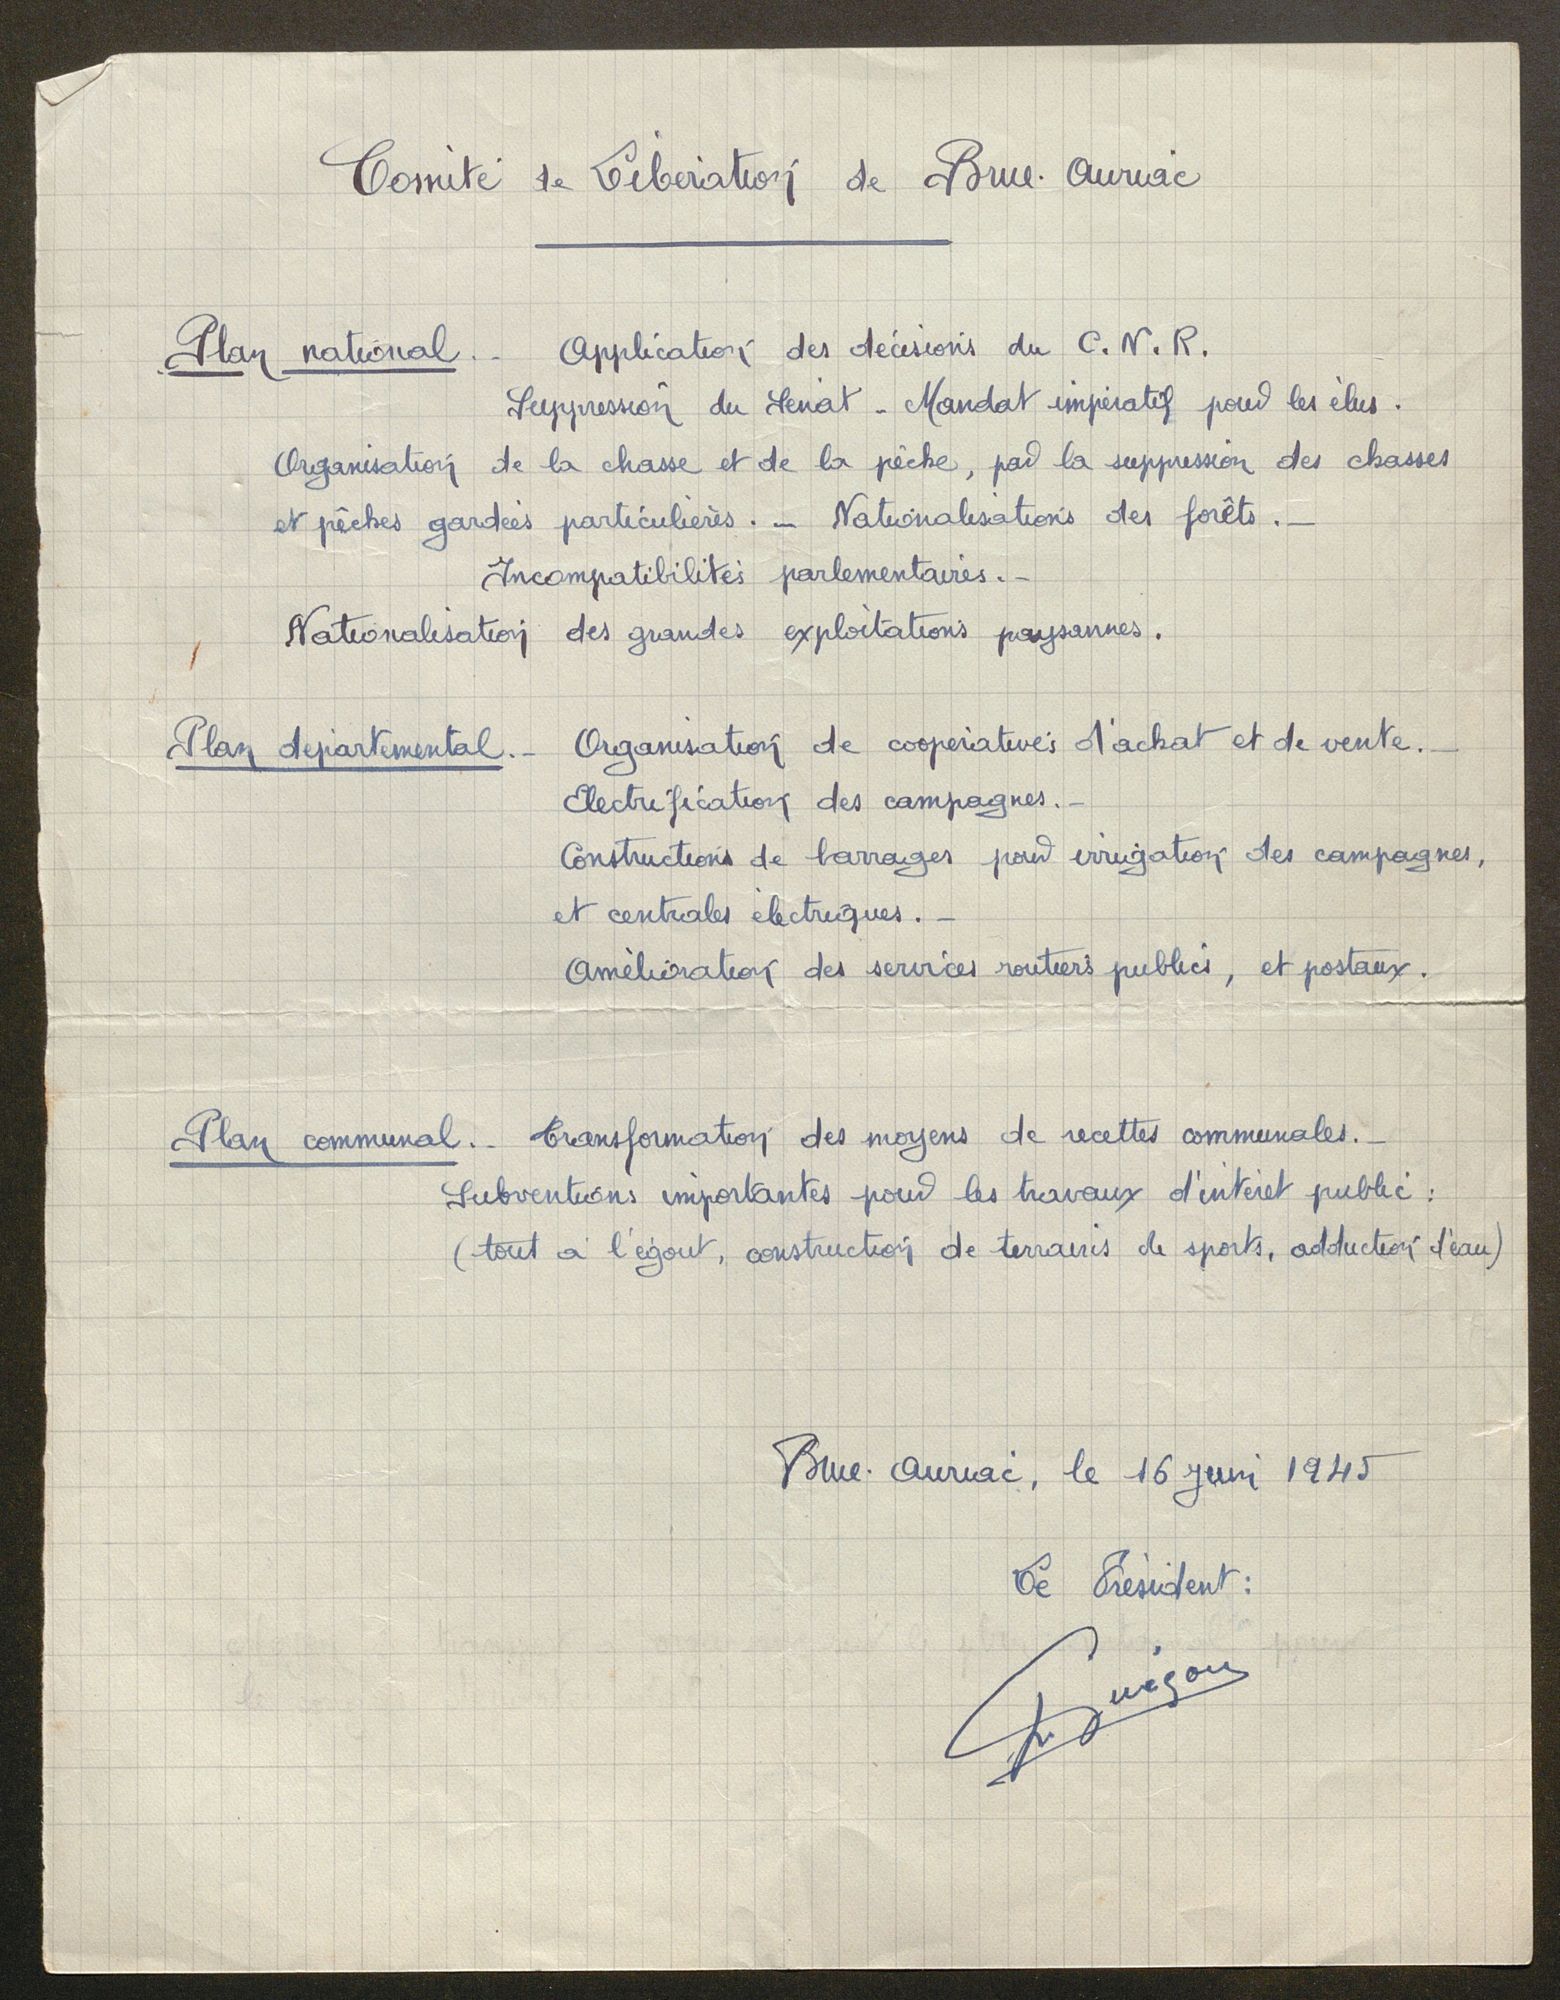 Comité de Libération de Brue-Auriac
Plan national.- Application des décisions du C.N.R.
Suppression du Sénat - Mandat impératif pour les élus.
Organisation de la chasse et de la pêche, par la suppression des chasses
et pêches gardées particulières. - Nationalisations des forêts. -
Incompatibilités parlementaires. -
Nationalisation des grandes exploitations paysannes.
Plan départemental. - Organisation de coopératives d'achat et de vente. -
Electrification des campagnes. -
Constructions de barrages pour irrigation des campagnes,
et centrales électriques. -
Amélioration des services routiers publics, et postaux.
Plan communal. - Transformation des moyens de recettes communales. -
Subventions importantes pour les travaux d'intérêt public :
(tout à l'égout, construction de terrains de sports, adduction d'eau)
Brue-Auriac, le 16 Juin 1945
Le Président :